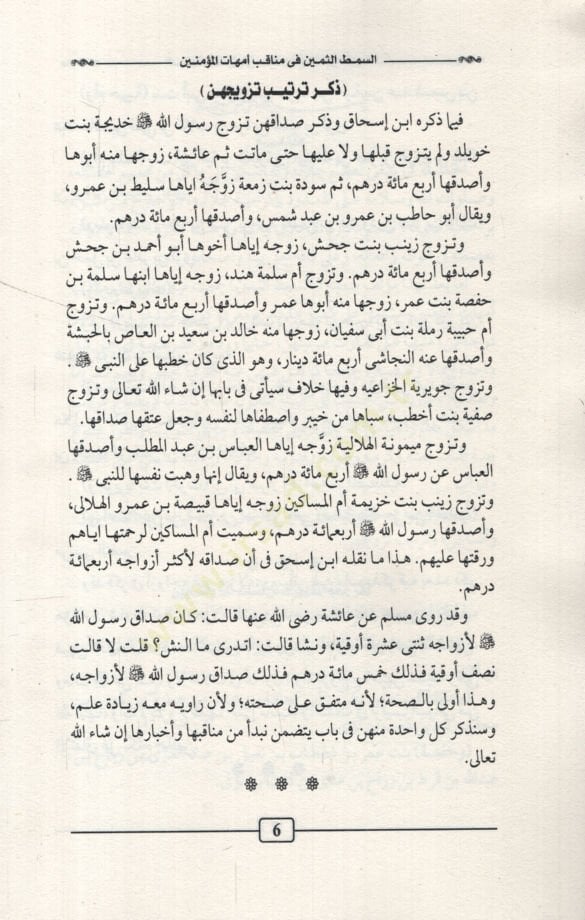 السمط الثمين فى مناقب أمهات المؤمنين
(ذكر ترتيب تزويجهن)
فيما ذكره ابن إسحاق وذكر صداقهن تزوج رسول الله ﷺ خديجة بنت
خويلد ولم يتزوج قبلها ولا عليها حتى ماتت ثم عائشة، زوجها منه أبوها
وأصدقها أربع مائة درهم، ثم سودة بنت زمعة زوَّجَهُ اياها سليط بن عمرو،
ويقال أبو حاطب بن عمرو بن عبد شمس، وأصدقها أربع مائة درهم.
وتزوج زينب بنت جحش، زوجه إياها أخوها أبو أحمد بن جحش
وأصدقها أربع مائة درهم. وتزوج أم سلمة هند، زوجه إياها ابنها سلمة بن
حفصة بنت عمر، زوجها منه أبوها عمر وأصدقها أربع مائة درهم. وتزوج
أم حبيبة رملة بنت أبى سفيان، زوجها منه خالد بن سعيد بن العاص بالحبشة
وأصدقها عنه النجاشى أربع مائة دينار، وهو الذى كان خطبها على النبى ﷺ .
وتزوج جويرية الخزاعيه وفيها خلاف سيأتى فى بابها إن شاء الله تعالى وتزوج
صفية بنت أخطب، سباها من خيبر واصطفاها لنفسه وجعل عتقها صداقها.
وتزوج ميمونة الهلالية زوَّجه إياها العباس بن عبد المطلب وأصدقها
العباس عن رسول الله ﷺ أربع مائة درهم، ويقال إنها وهبت نفسها للنبى ﷺ .
وتزوج زينب بنت خزيمة أم المساكين زوجه إياها قبيصة بن عمرو الهلالى،
وأصدقها رسول الله ﷺ أربعمائة درهم، وسميت أم المساكين لرحمتها اياهم
ورقتها عليهم. هذا ما نقله ابن إسحق فى أن صداقه لأكثر أزواجه أربعمائة
درهم.
وقد روى مسلم عن عائشة رضى الله عنها قالت: كان صداق رسول الله
ﷺ لأزواجه ثنتى عشرة أوقية، ونشا قالت: اتدرى ما النش؟ قلت لا قالت
نصف أوقية فذلك خمس مائة درهم فذلك صداق رسول الله ﷺ لأزواجه،
وهذا أولى بالصحة؛ لأنه متفق على صحته؛ ولأن راويه معه زيادة علم،
وسنذكر كل واحدة منهن فى باب يتضمن نبدأ من مناقبها وأخبارها إن شاء الله
تعالى.
6